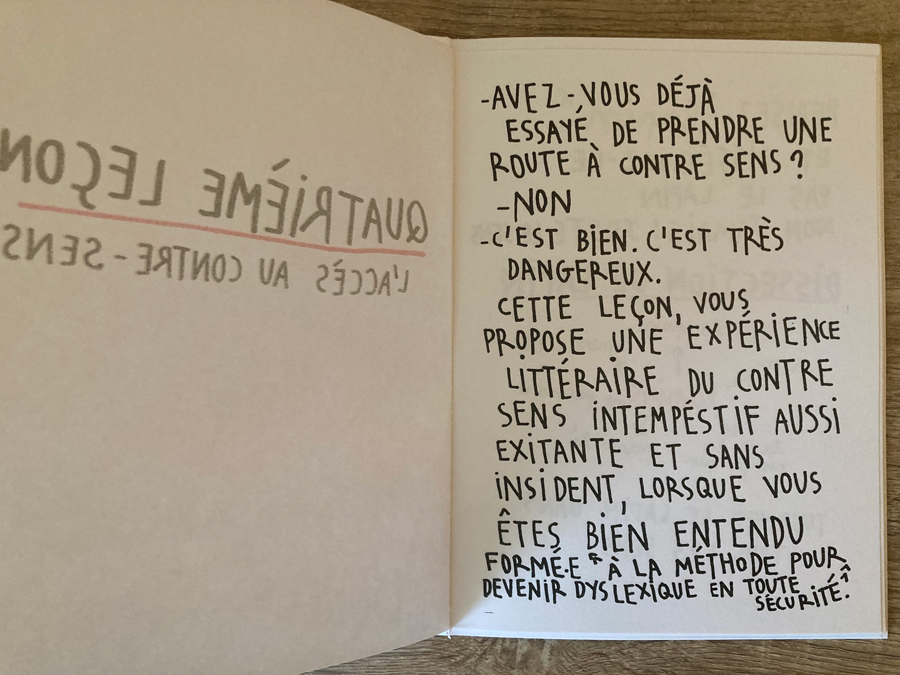 QUATRIÈME LEÇON
L'ACCÈS AU CONTRE-SENS
-AVEZ-VOUS DÉJÀ
ESSAYÉ DE PRENDRE UNE
ROUTE À CONTRE SENS ?
-NON
-C'EST BIEN. C'EST TRÈS
DANGEREUX.
CETTE LEÇON, VOUS
PROPOSE UNE EXPÉRIENCE
LITTÉRAIRE DU CONTRE
SENS INTEMPÉSTIF AUSSI
EXITANTE ET SANS
INSIDENT, LORSQUE VOUS
ÊTES BIEN ENTENDU
FORMÉ·E “À LA MÉTHODE POUR
DEVENIR DYSLEXIQUE EN TOUTE
SÉCURITÉ.”